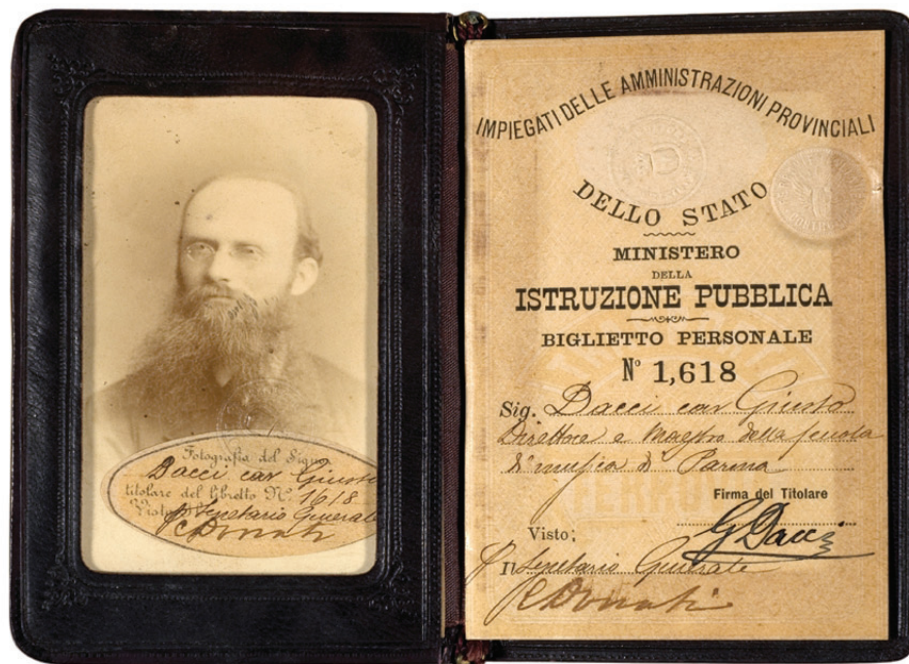 Fotografia del Sign.
Dacci cav Giusto
titolare del libretto Nº 1618
Visto
p Il Segretario Generale
C Donati
IMPIEGATI DELLE AMMINISTRAZIONI PROVINCIALI
DELLO STATO
MINISTERO
DELLA
ISTRUZIONE PUBBLICA
BIGLIETTO PERSONALE
Nº 1,618
Sig. Dacci cav Giusto
Direttore e Maestro della scuola
di musica di Parma
Firma del Titolare
G Dacci
Visto;
p Il Segretario Generale
C Donati